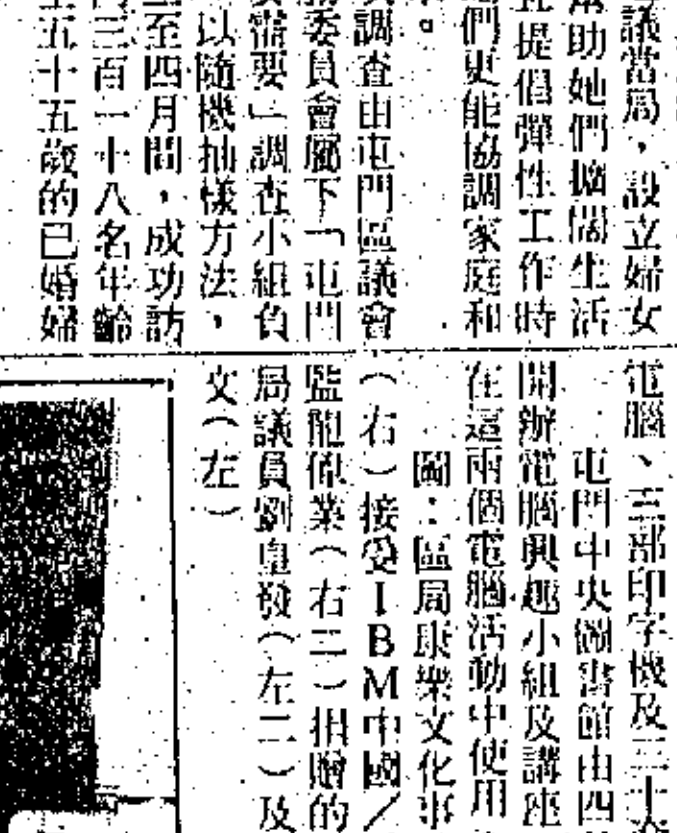 議當局，設立婦女
助她們擴闊生活
提倡彈性工作時
們更能協調家庭和
。
調查由屯門區議會
委員會屬下「屯門
需要」調查小組負
以隨機抽樣方法，
至四月間，成功訪
三百一十八名年齡
五十五歲的已婚婦
電腦、三部印字機及三十
屯門中央圖書館由四
開辦電腦興趣小組及講座
在這兩個電腦活動中使用
圖：區局康樂文化事
（右）接受IBM中國／
監龍偉業（右二）捐贈的
局議員劉皇發（左二）及
文（左）